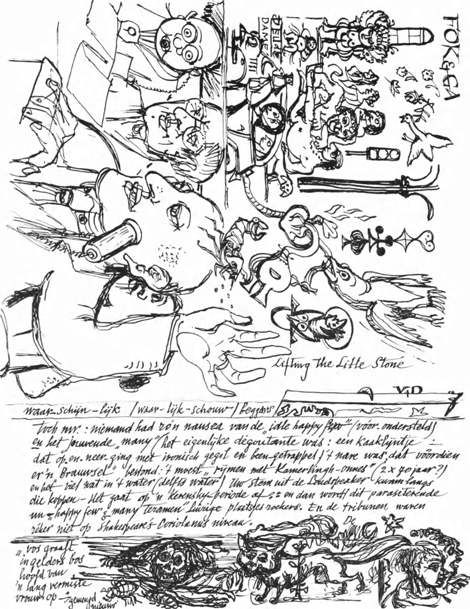 FOK & GA
DELFT
DANS
Lifting The Little Stone
V.D
waar-schijn-lijk / waar-lijk-schouw / Beggars
Toch mr.: niemand had zo'n nausea van de idle happy few / voor ondersteld
en het jouwende many / het eigenlijke degoutante was: een kaaklijntje
dat op en neer ging met ironisch gegil en been getrappel / 't nare was dat voordien
er 'n Brauwsel bestond: 't moest rijmen met Kamerlingh-onnes / 2x 70 jaar?)
en het viel wat in 't water / delfts water / Uw stem uit de Loudspeaker kwam langs
die koppen. Het gaat op 'n periode af en dan wordt dit parasiterende
happy few many teramen luizige plaatsjes rockers. En de tribunen waren
zeker niet op Shakespeare's Coriolanus niveau.
De
"vos graaft
in gelders bos
hoofd van
'n lang vermiste
vrouw op" gemengd
nieuws